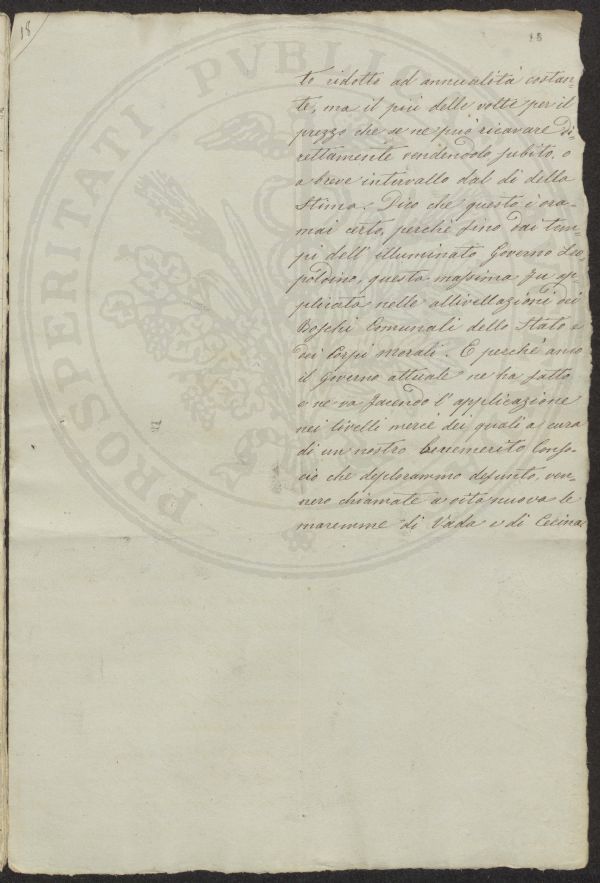 18
18
to ridotto ad annualità costan=
te, ma il più delle volte per il
prezzo che se ne può ricavare di=
rettamente vendendolo subito, o
a breve intervallo dal dì della
Stima. Dico che questo è ora=
mai certo, perché fino dai tem=
pi dell' illuminato Governo Leo
poldino, questa massima fu ap=
plicata nelle allivellazioni dei
Boschi Comunali dello Stato e
dei Corpi morali. E perché anco
il Governo attuale ne ha fatto
e ne va facendo l' applicazione
nei livelli mercé dei quali a cura
di un nostro benemerito Conso=
cio che deplorammo defunto, ven=
nero chiamate a vita nuova le
maremme di Vada e di Cecina
PROSPERITATI PVBLIC